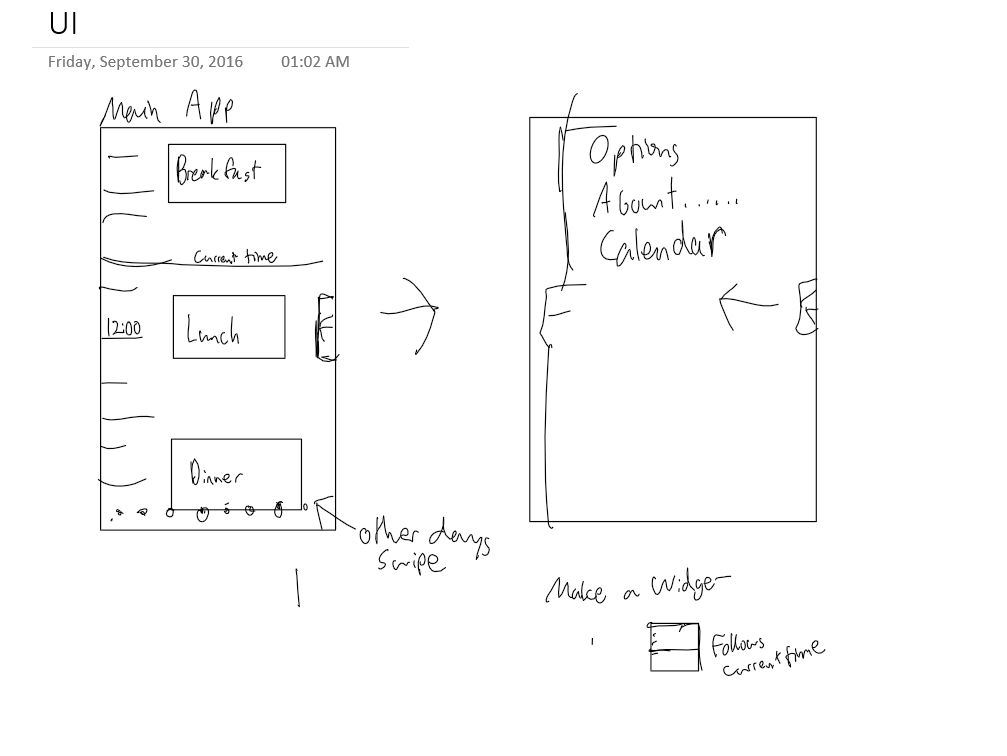 UI
Friday, September 30, 2016 01:02 AM
Main App
Breakfast
Current time
12:00
Lunch
Dinner
other days
swipe
Options
About......
Calendar
Make a Widget
Follows
current time